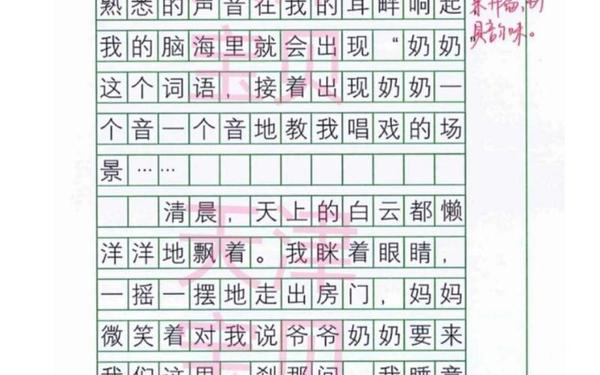 熟悉的声音在我的耳畔响起
我的脑海里就会出现“奶奶”
这个词语，接着出现奶奶一
个音一个音地教我唱戏的场
景……
清晨，天上的白云都懒
洋洋地飘着。我眯着眼睛，
一摇一摆地走出房门，妈妈
微笑着对我说爷爷奶奶要来
我们这里。刹那间，我睡意
韵味。
天津
宝贝